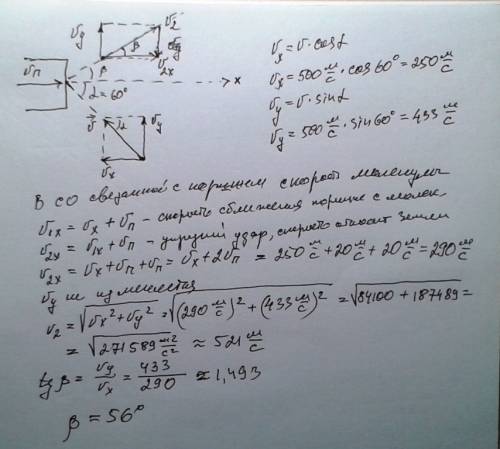 υy υ2 υy
β υ2x
υп β
α=60° x
υ⃗ α υy
υx
υx = υ·cosα
υx = 500 м/с · cos60° = 250 м/с
υy = υ·sinα
υy = 500 м/с · sin60° = 433 м/с
В СО связанной с поршнем скорость молекулы
υ1x = υx + υп – скорость сближения поршня с молек.
υ2x = υ1x + υп – упругий удар, скорость относит Земли
υ2x = υx + υп + υп = υx + 2υп = 250 м/с + 20 м/с + 20 м/с = 290 м/с
υy не изменется
υ2 = √υx² + υy² = √(290 м/с)² + (433 м/с)² = √84100 + 187489 =
= √271589 м²/с² ≈ 521 м/с
tg β = υy/υx = 433/290 ≈ 1,493
β = 56°